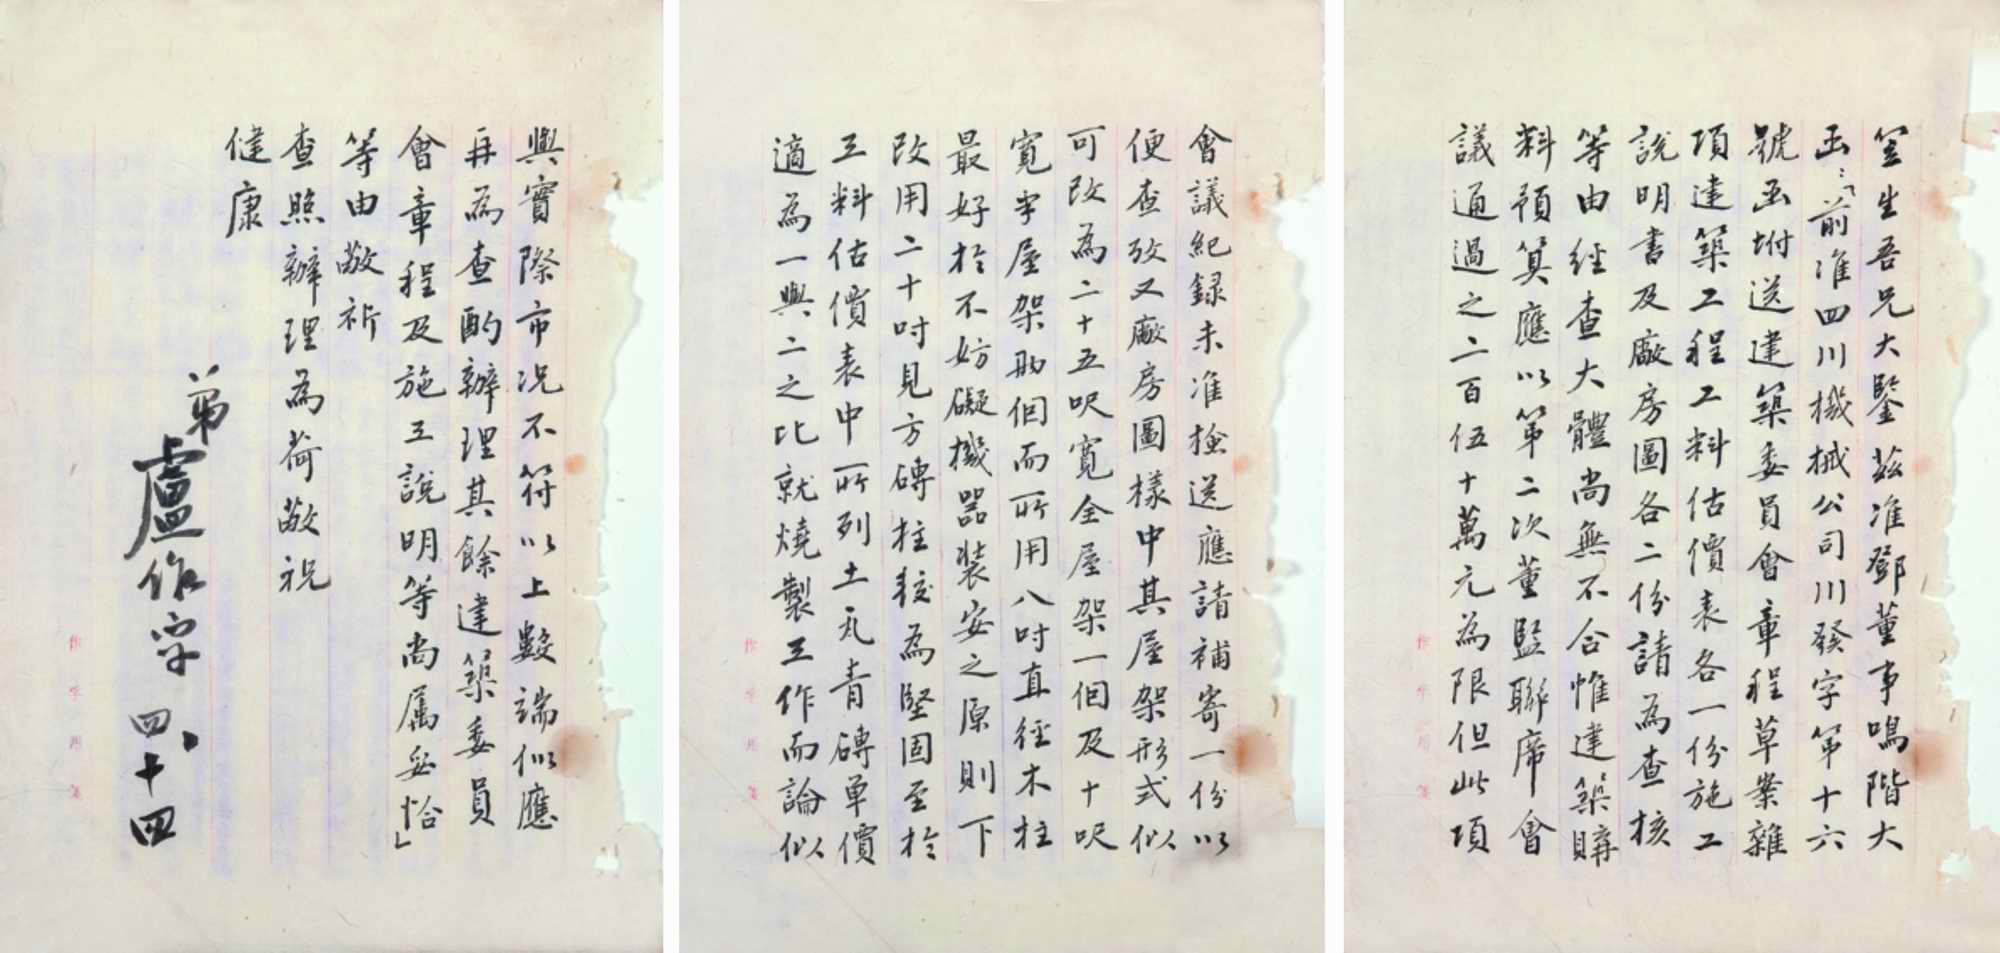 笠生吾兄大鑒茲准鄧董事鳴階大
函：「前准四川機械公司川發字第十六
號函坿送建築委員會章程草案雜
項建築工程工料估價表各一份施工
說明書及廠房圖各二份請為查核
等由經查大體尚無不合惟建築購
料預算應以第二次董監聯席會
議通過之二百伍十萬元為限但此項
會議紀録未准檢送應請補寄一份以
便查攷又廠房圖樣中其屋架形式似
可改為二十五呎寬全屋架一個及十呎
寬半屋架兩個而所用八吋直徑木柱
最好於不妨礙機器裝安之原則下
改用二十吋見方磚柱較為堅固至於
工料估價表中所列土瓦青磚單價
適為一與二之比就燒製工作而論似
與實際市况不符以上數端似應
再為查酌辦理其餘建築委員
會章程及施工說明等尚属妥恰」
等由敬祈
查照辦理為荷敬祝
健康
弟盧作孚 四、十四
作孚用箋
作孚用箋
作孚用箋